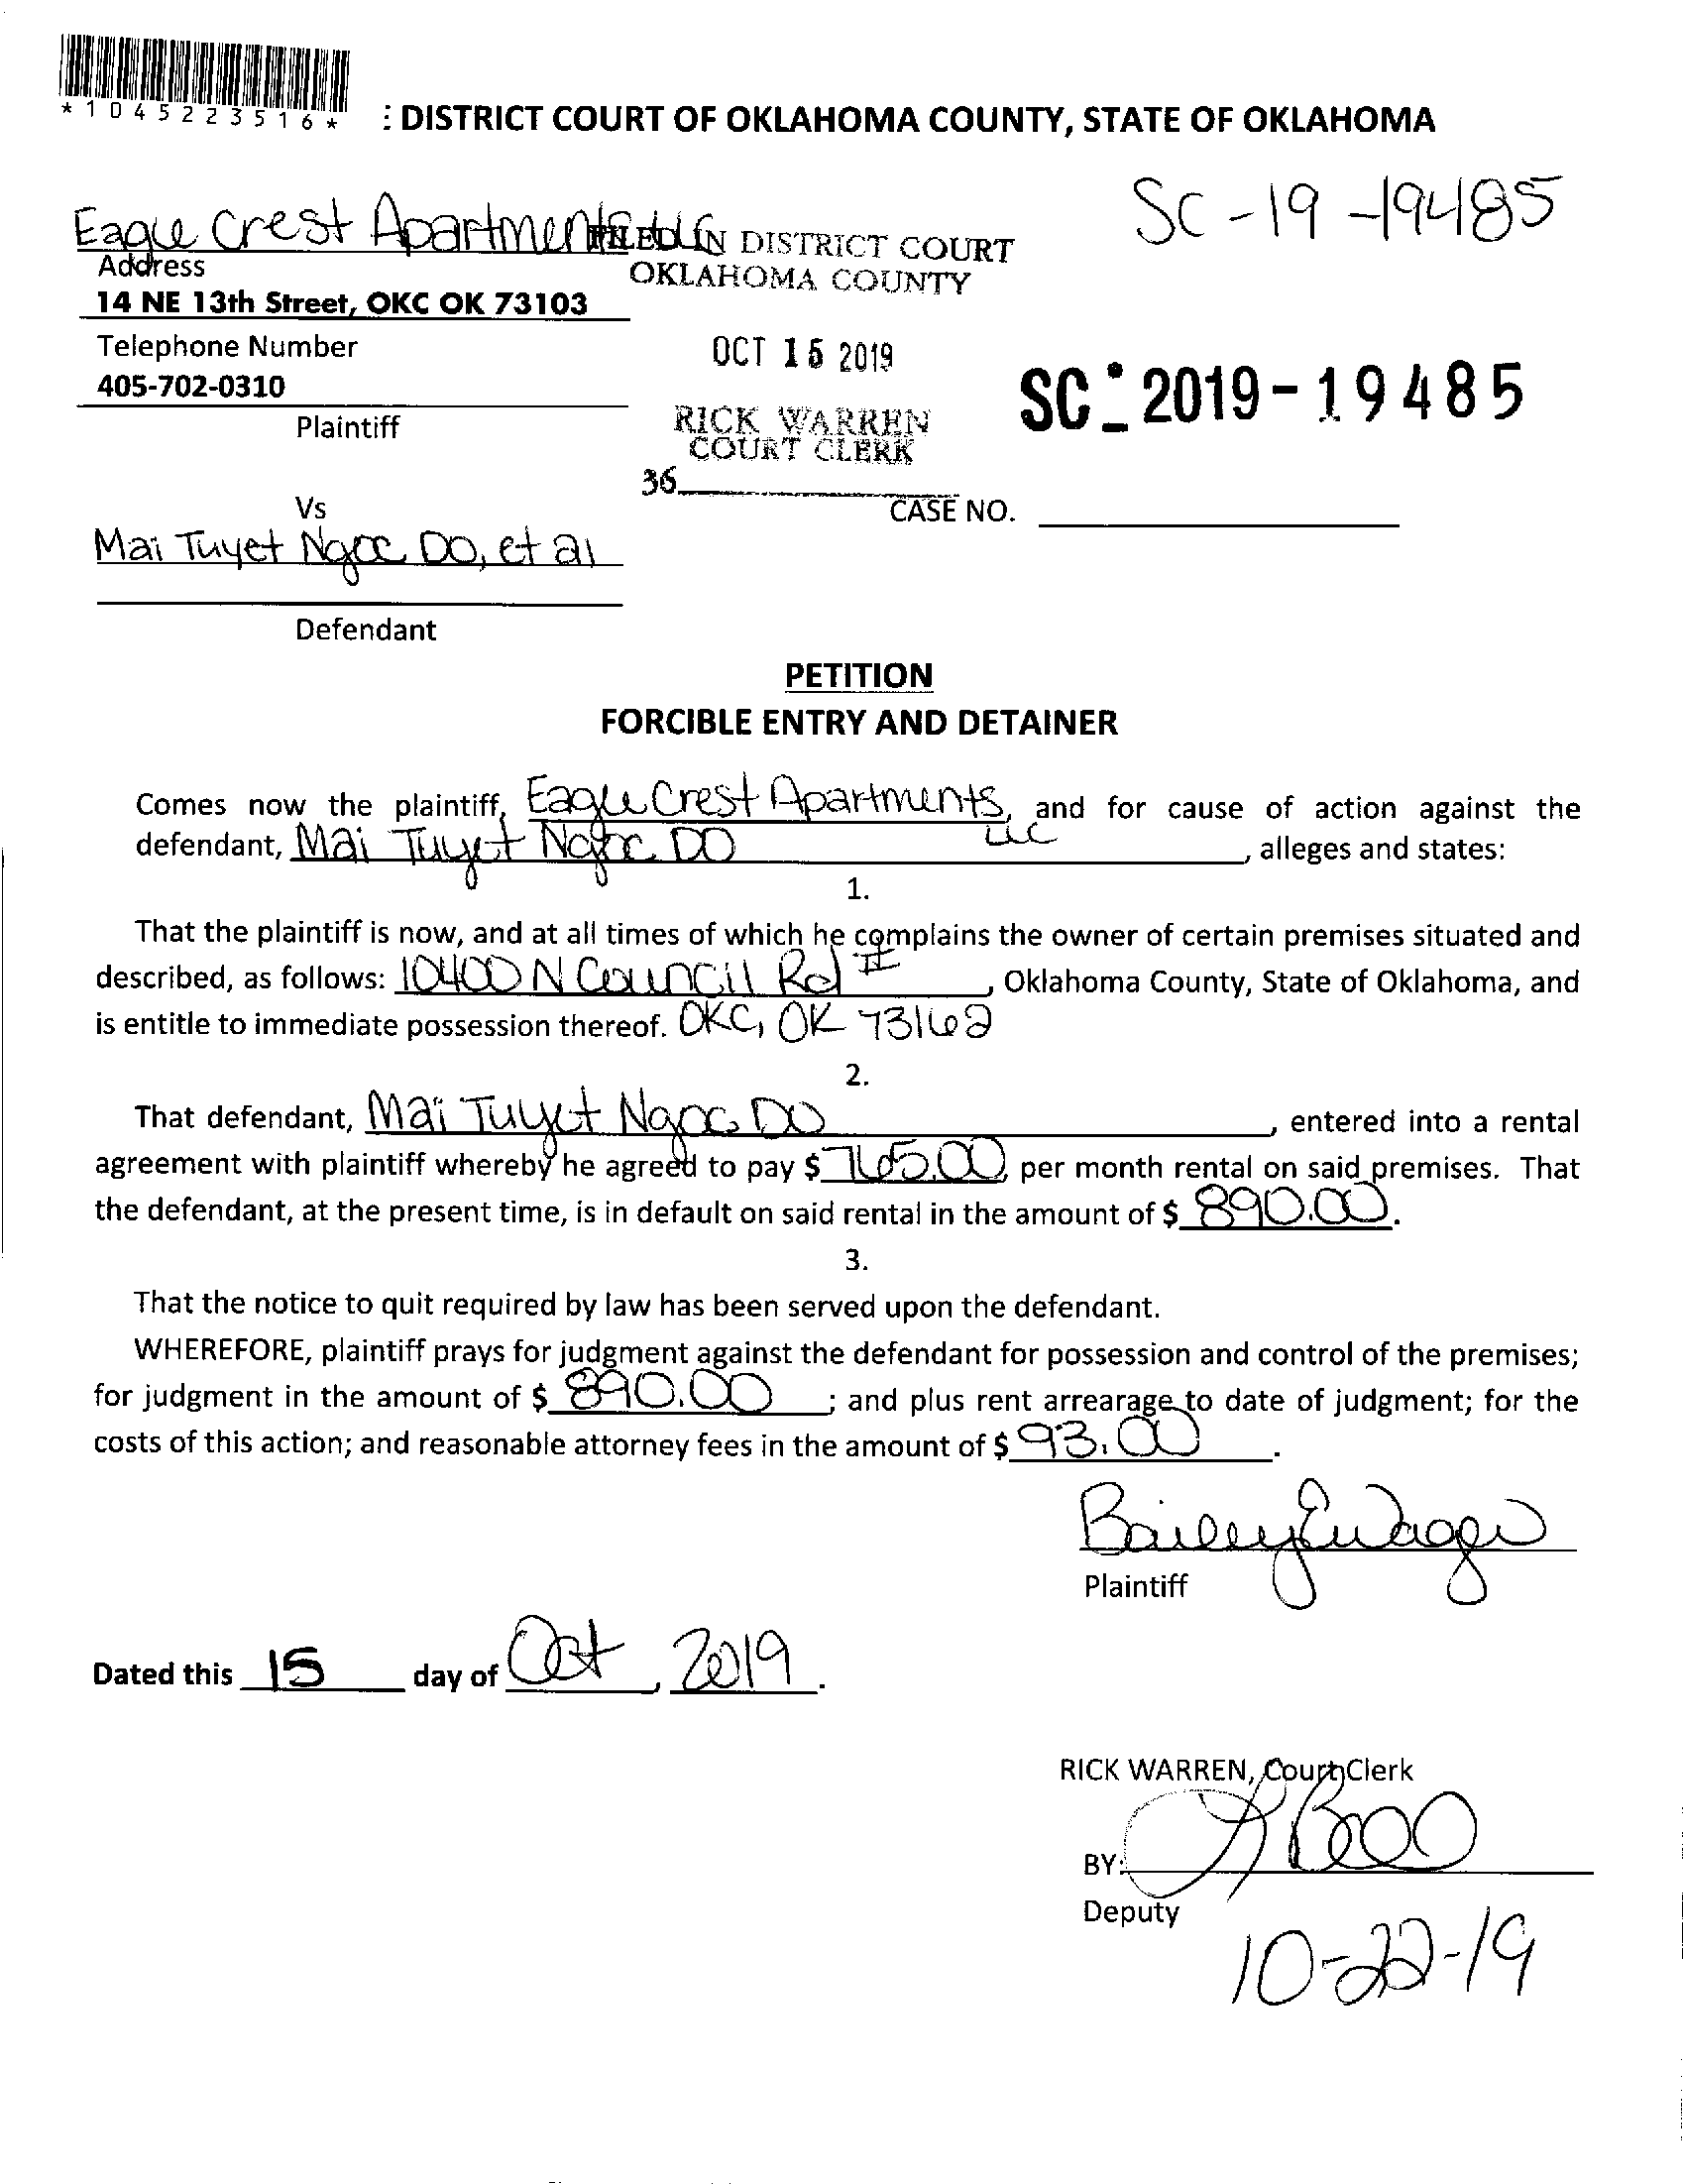 *1045223516*
: DISTRICT COURT OF OKLAHOMA COUNTY, STATE OF OKLAHOMA
SC-19-19485
Eagle Crest Apartments LLC
FILED IN DISTRICT COURT
OKLAHOMA COUNTY
Address
14 NE 13th Street, OKC OK 73103
Telephone Number
405-702-0310
Plaintiff
OCT 15 2019
RICK WARREN
COURT CLERK
36
SC-2019-19485
CASE NO.
Vs
Mai Tuyet Ngoc Do, et al
Defendant
PETITION
FORCIBLE ENTRY AND DETAINER
Comes now the plaintiff, Eagle Crest Apartments, LLC and for cause of action against the
defendant, Mai Tuyet Ngoc DO, alleges and states:
1.
That the plaintiff is now, and at all times of which he complains the owner of certain premises situated and
described, as follows: 10400 N Council Rd, Oklahoma County, State of Oklahoma, and
is entitle to immediate possession thereof. OKC, OK 73162
2.
That defendant, Mai Tuyet Ngoc DO, entered into a rental
agreement with plaintiff whereby he agreed to pay $765.00, per month rental on said premises. That
the defendant, at the present time, is in default on said rental in the amount of $890.00.
3.
That the notice to quit required by law has been served upon the defendant.
WHEREFORE, plaintiff prays for judgment against the defendant for possession and control of the premises;
for judgment in the amount of $890.00; and plus rent arrearage to date of judgment; for the
costs of this action; and reasonable attorney fees in the amount of $93.00.
Plaintiff
Dated this 15 day of Oct, 2019.
RICK WARREN, Court Clerk
BY:
Deputy
10-22-19